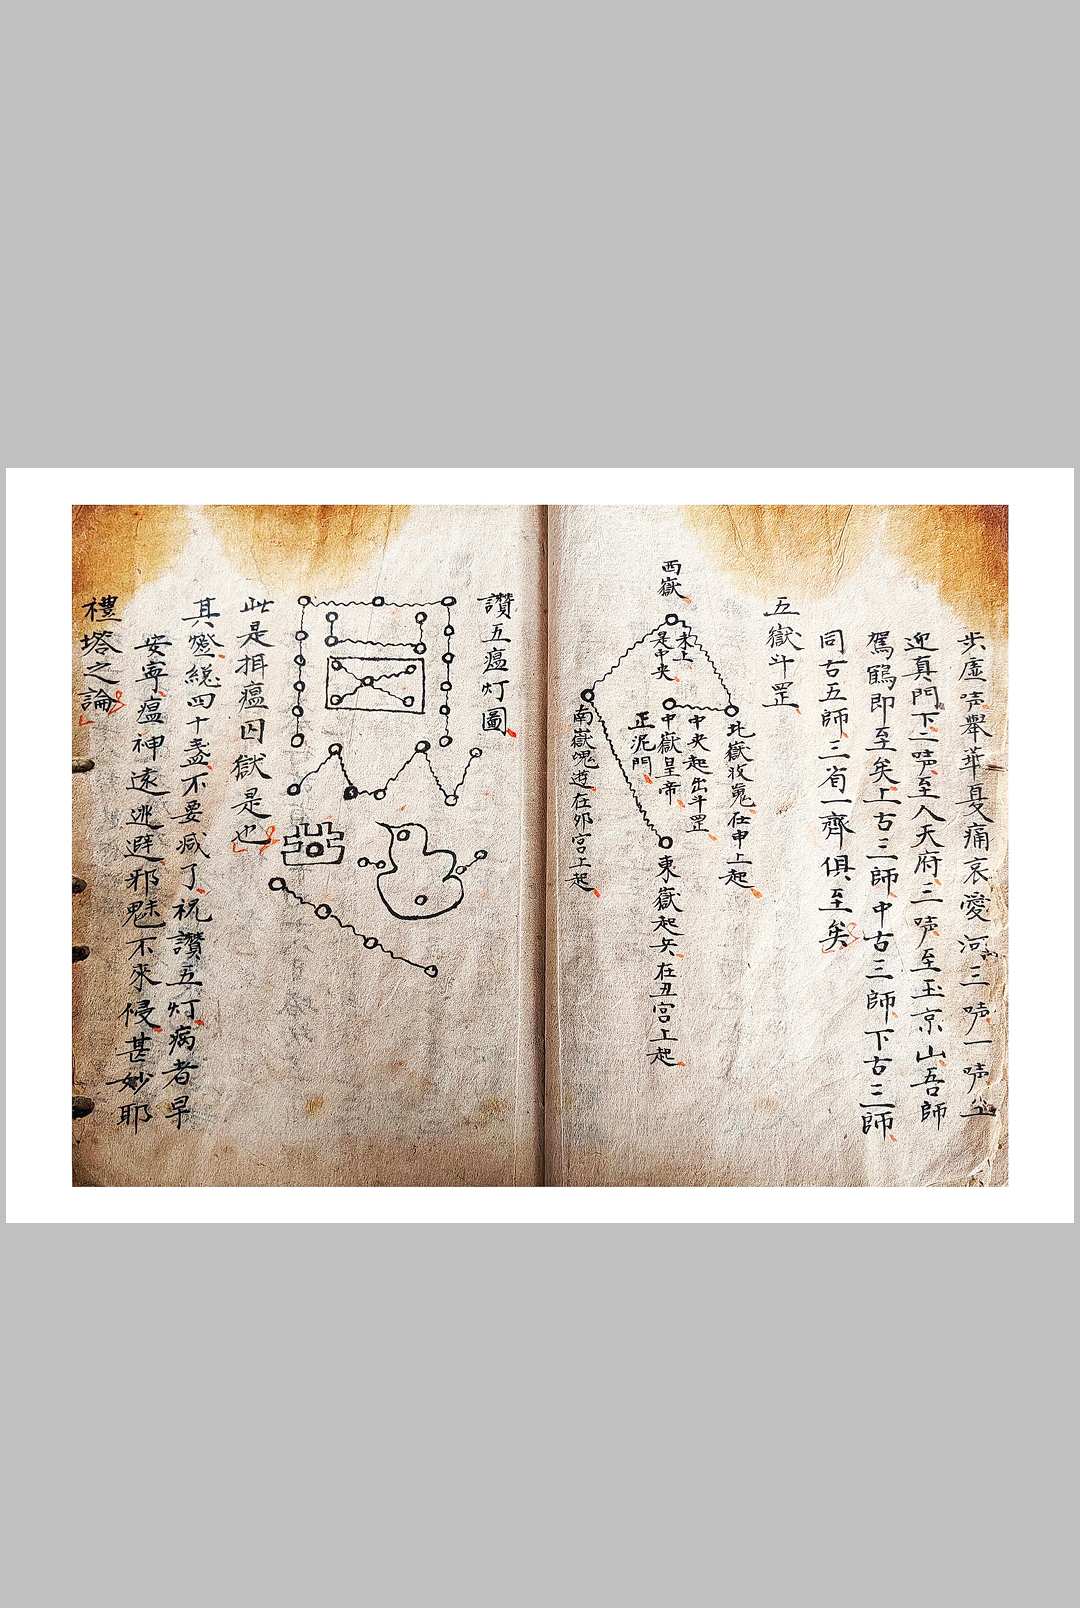 步虛声舉華夏痛哀愛河三声一声
迎真門下二声至入天府三声至玉京山吾師
駕鶴即至矣上古三師中古三師下古三師
同古五師三省一齊俱至矣
五嶽斗罡
西嶽
是中央
北嶽收嵬在申上起
中央起出斗罡
中嶽呈帝
正泥門
東嶽起兵在丑宮上起
南嶽嵬遊在卯宮上起
讚五瘟灯圖
此是揖瘟囚獄是也
其燈総四十盞不要减了祝讚五灯病者早
安寧瘟神遠逃避邪魅不來侵甚妙耶
禮塔之論